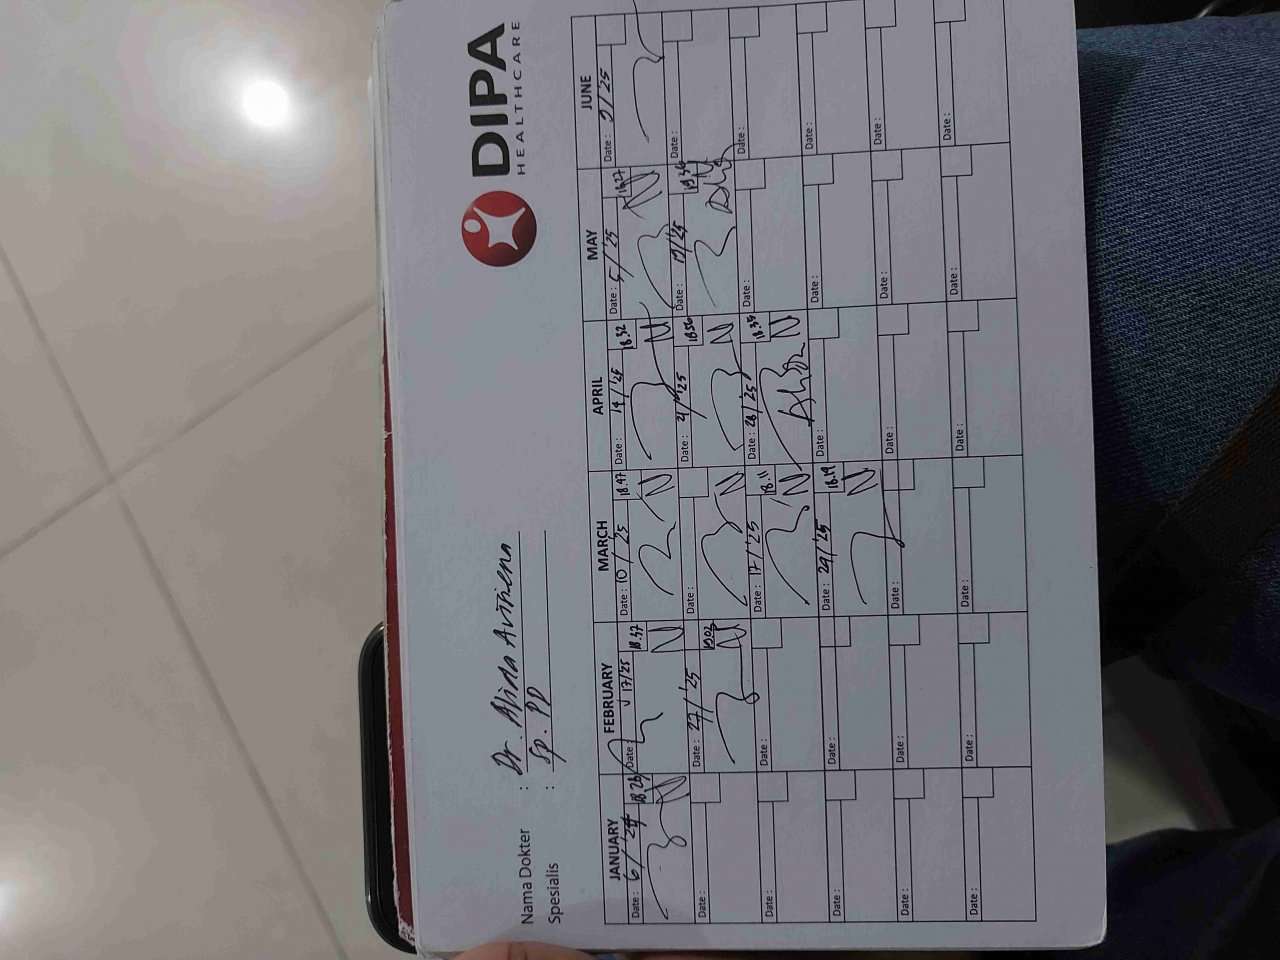 DIPA
HEALTHCARE
Nama Dokter : Dr. Alida Avitiena
Spesialis : Sp. PD
JANUARY FEBRUARY MARCH APRIL MAY JUNE
Date : 6/'24 18.26 Date : 17/25 18.37 Date : 10/'25 18.47 Date : 14/'25 18.32 Date : 5/'25 Date : 2/25
N N N N N
Date : Date : 27/'25 19.02 Date : Date : 21/'25 18.56 Date : 19/'25 Date :
N N N N
Date : Date : Date : 17/'25 18.11 Date : 28/'25 18.35 Date : Date :
N N
Date : Date : Date : 24/'25 18.19 Date : Date : Date :
N
Date : Date : Date : Date : Date : Date :
Date : Date : Date : Date : Date : Date :